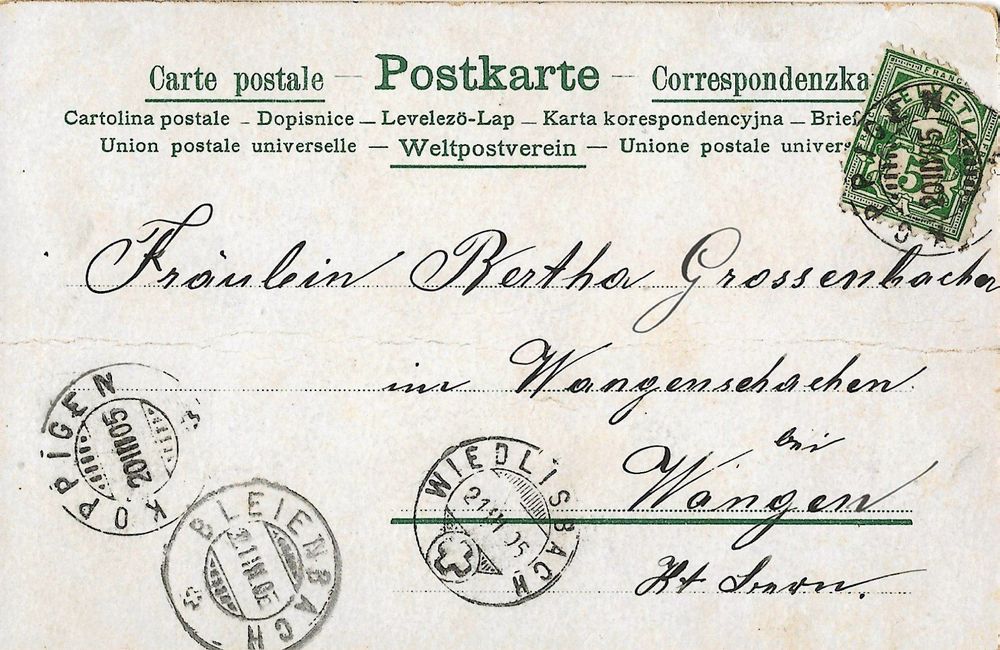 Carte postale — Postkarte — Correspondenzka
Cartolina postale — Dopisnice — Levelezö-Lap — Karta korespondencyjna — Brief
Union postale universelle — Weltpostverein — Unione postale univers
FRANCO
HELVETIA
5
20 III 05
Fräulein Bertha Grossenbacher
im Wangenschachen
bei
Wangen
Kt Bern.
KOPPIGEN
20 III 05
WIEDLISBACH
21. 05
BLEIENBACH
05